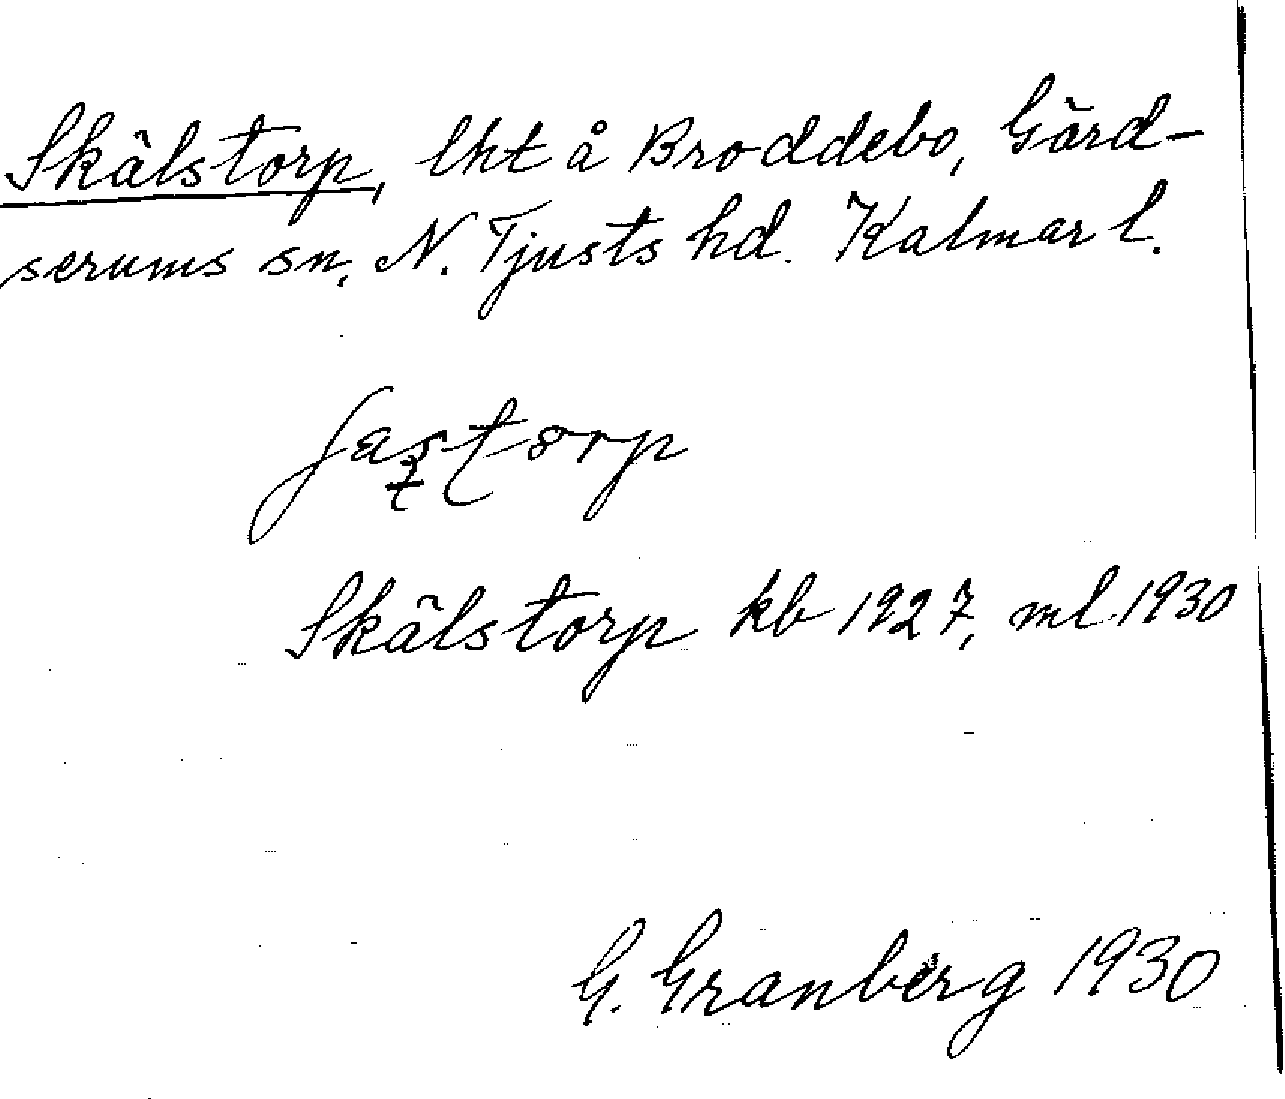 Skälstorp, lht å Broddebo, Gärd-
serums sn, N. Tjusts hd. Kalmar l.
Skälstorp kb 1927, ml 1930
G. Granberg 1930